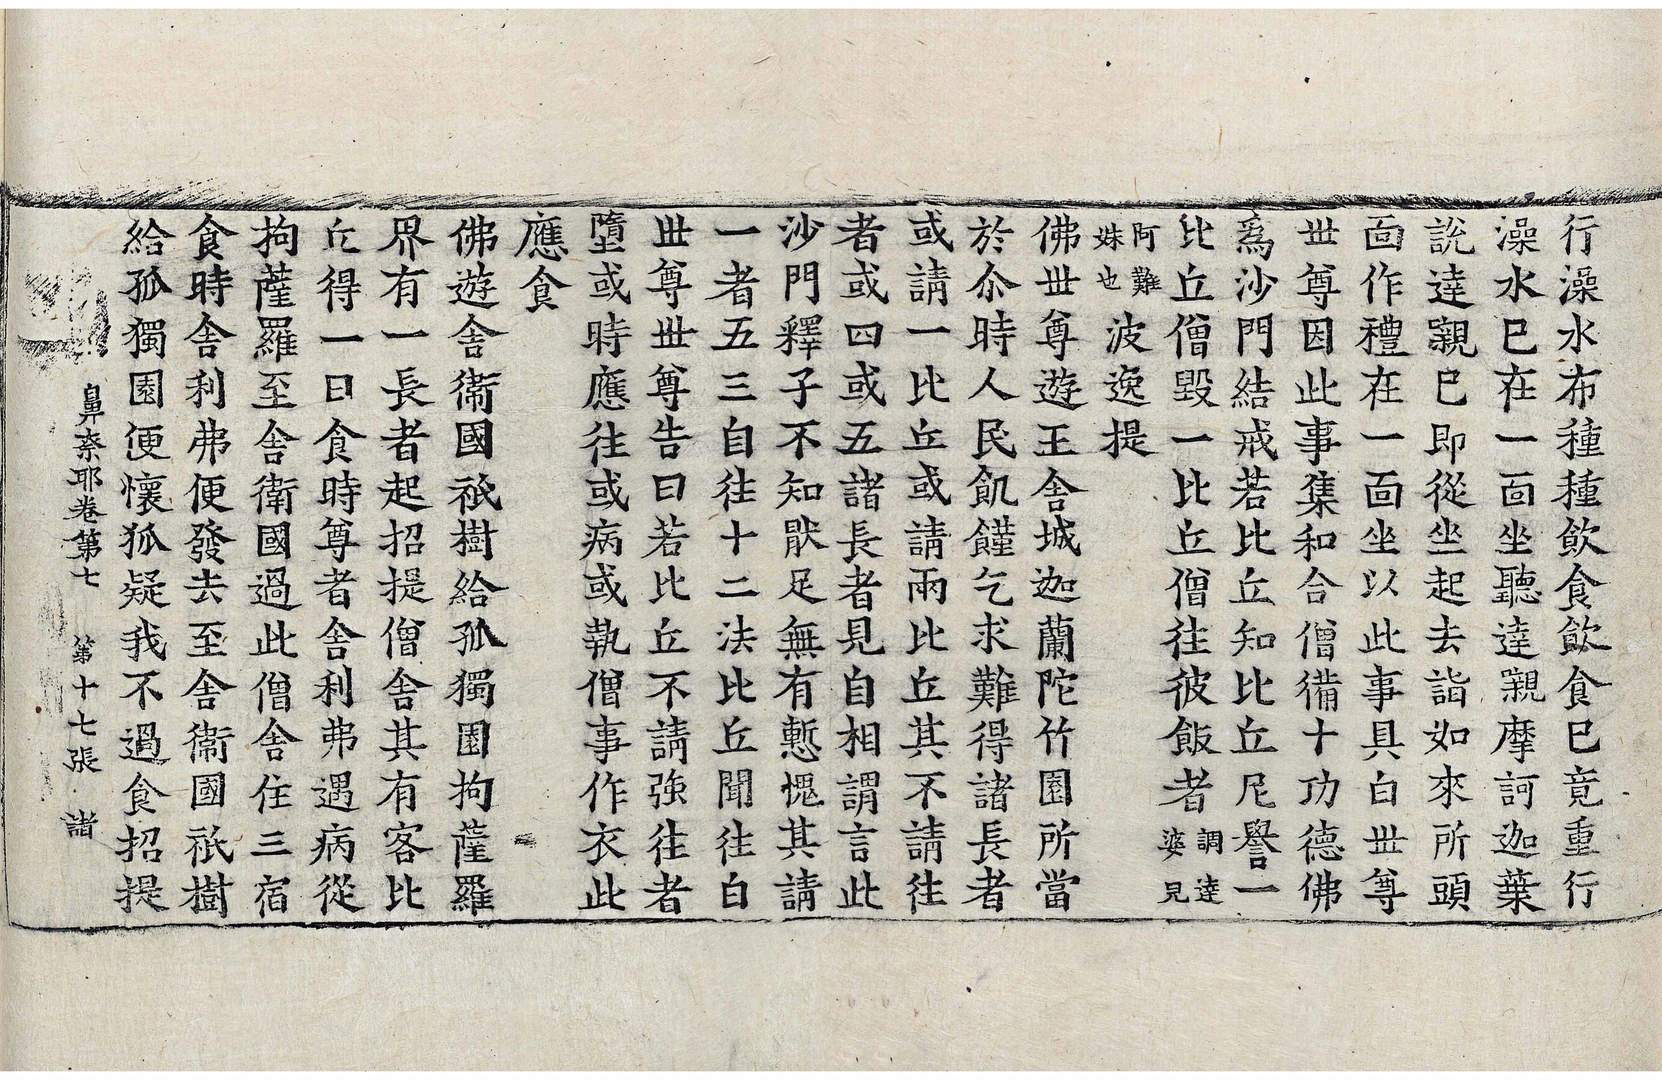 行澡水布種種飲食飲食已竟重行
澡水已在一面坐聽達嚫摩訶迦葉
說達嚫已即從坐起去詣如來所頭
面作禮在一面坐以此事具白世尊
世尊因此事集和合僧備十功德佛
爲沙門結戒若比丘知比丘尼譽一
比丘僧毀一比丘僧往彼飯者調達婆兄
阿難妹也波逸提
佛世尊遊王舍城迦蘭陀竹園所當
於尒時人民飢饉乞求難得諸長者
或請一比丘或請兩比丘其不請往
者或四或五諸長者見自相謂言此
沙門釋子不知猒足無有慙愧其請
一者五三自往十二法比丘聞往白
世尊世尊告曰若比丘不請強往者
墮或時應往或病或執僧事作衣此
應食
佛遊舍衛國祇樹給孤獨園拘薩羅
界有一長者起招提僧舍其有客比
丘得一日食時尊者舍利弗遇病從
拘薩羅至舍衛國過此僧舍住三宿
食時舍利弗便發去至舍衛國祇樹
給孤獨園便懷狐疑我不過食招提
鼻奈耶卷第七 第十七張 諸